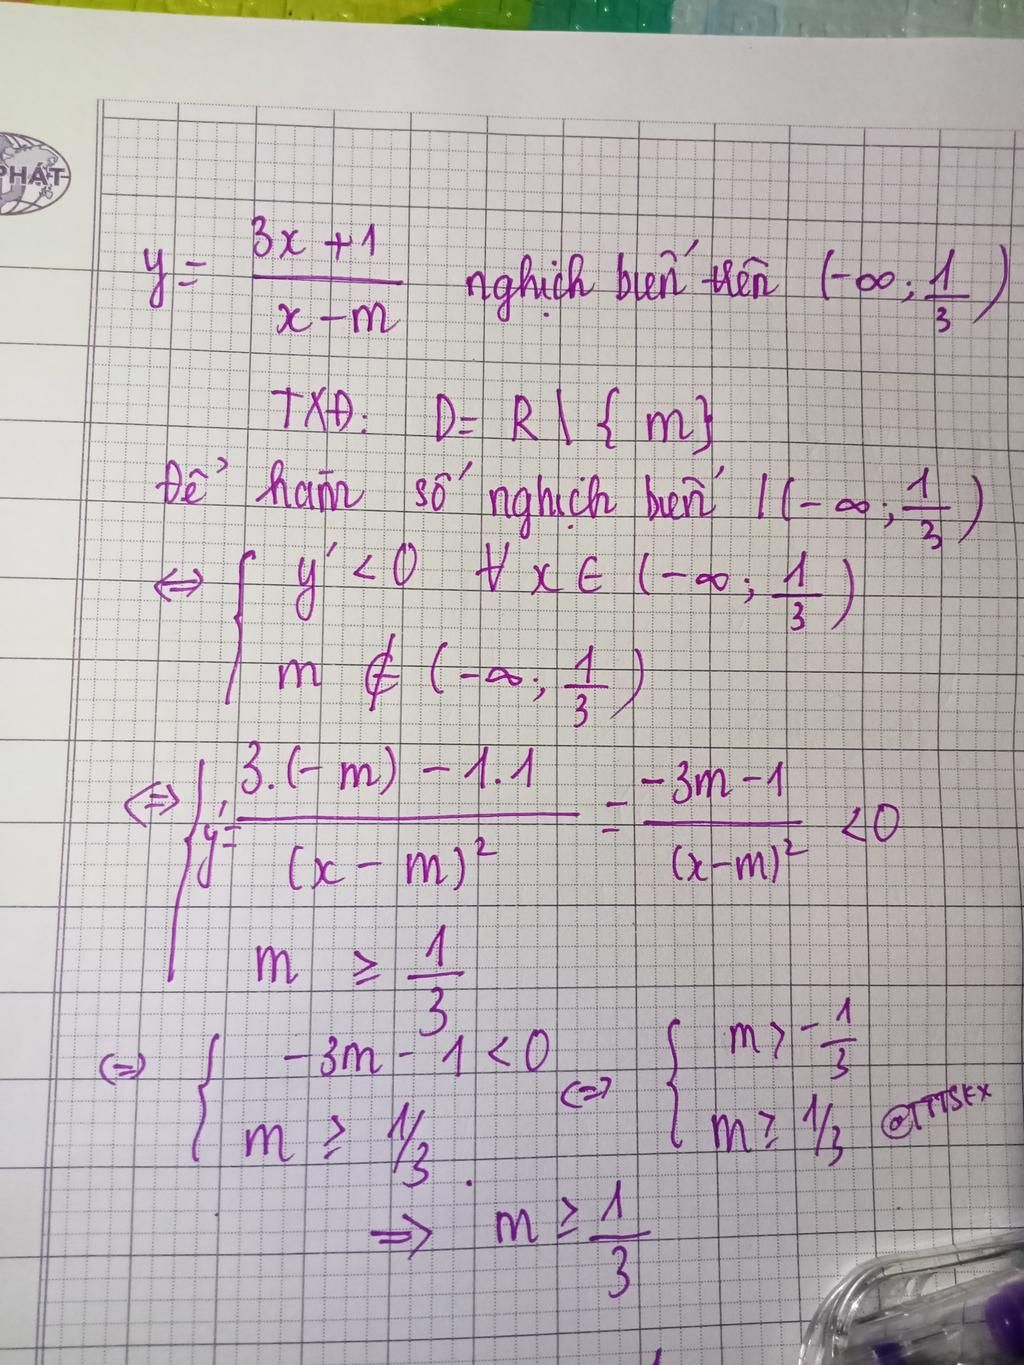 PHÁT
y = \frac{3x+1}{x-m} nghịch biến trên (-∞; \frac{1}{3})
TXĐ: D = R \ {m}
Để hàm số nghịch biến / (-∞; \frac{1}{3})
⇔ { y' < 0 ∀ x ∈ (-∞; \frac{1}{3})
m ∉ (-∞; \frac{1}{3})
⇔ { y' = \frac{3.(-m) - 1.1}{(x-m)^2} = \frac{-3m-1}{(x-m)^2} < 0
m ≥ \frac{1}{3}
⇔ { -3m - 1 < 0 ⇔ { m > -\frac{1}{3}
m ≥ 1/3. m ≥ 1/3
⇒ m ≥ \frac{1}{3}